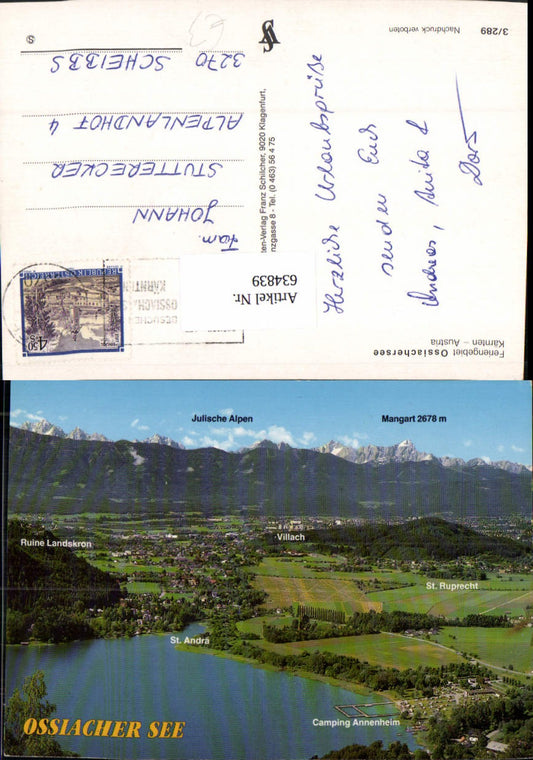 3/289
Nachdruck verboten
Feriengebiet Ossiachersee
Kärnten – Austria
Herzliche Urlaubsgrüße
senden Euch
Andreas, Anita &
Doris
ten-Verlag Franz Schilcher, 9020 Klagenfurt,
nzgasse 8 - Tel. (0 463) 56 4 75
Artikel Nr.
634839
BESUCHE
OSSIACH
KÄRNT
REPUBLIK ÖSTERREICH
4.50
S
Fam.
JOHANN
STUTTERECKER
ALPENLANDHOF 4
3270 SCHEIBBS
Julische Alpen
Mangart 2678 m
Ruine Landskron
Villach
St. Ruprecht
St. Andrä
Camping Annenheim
OSSIACHER SEE